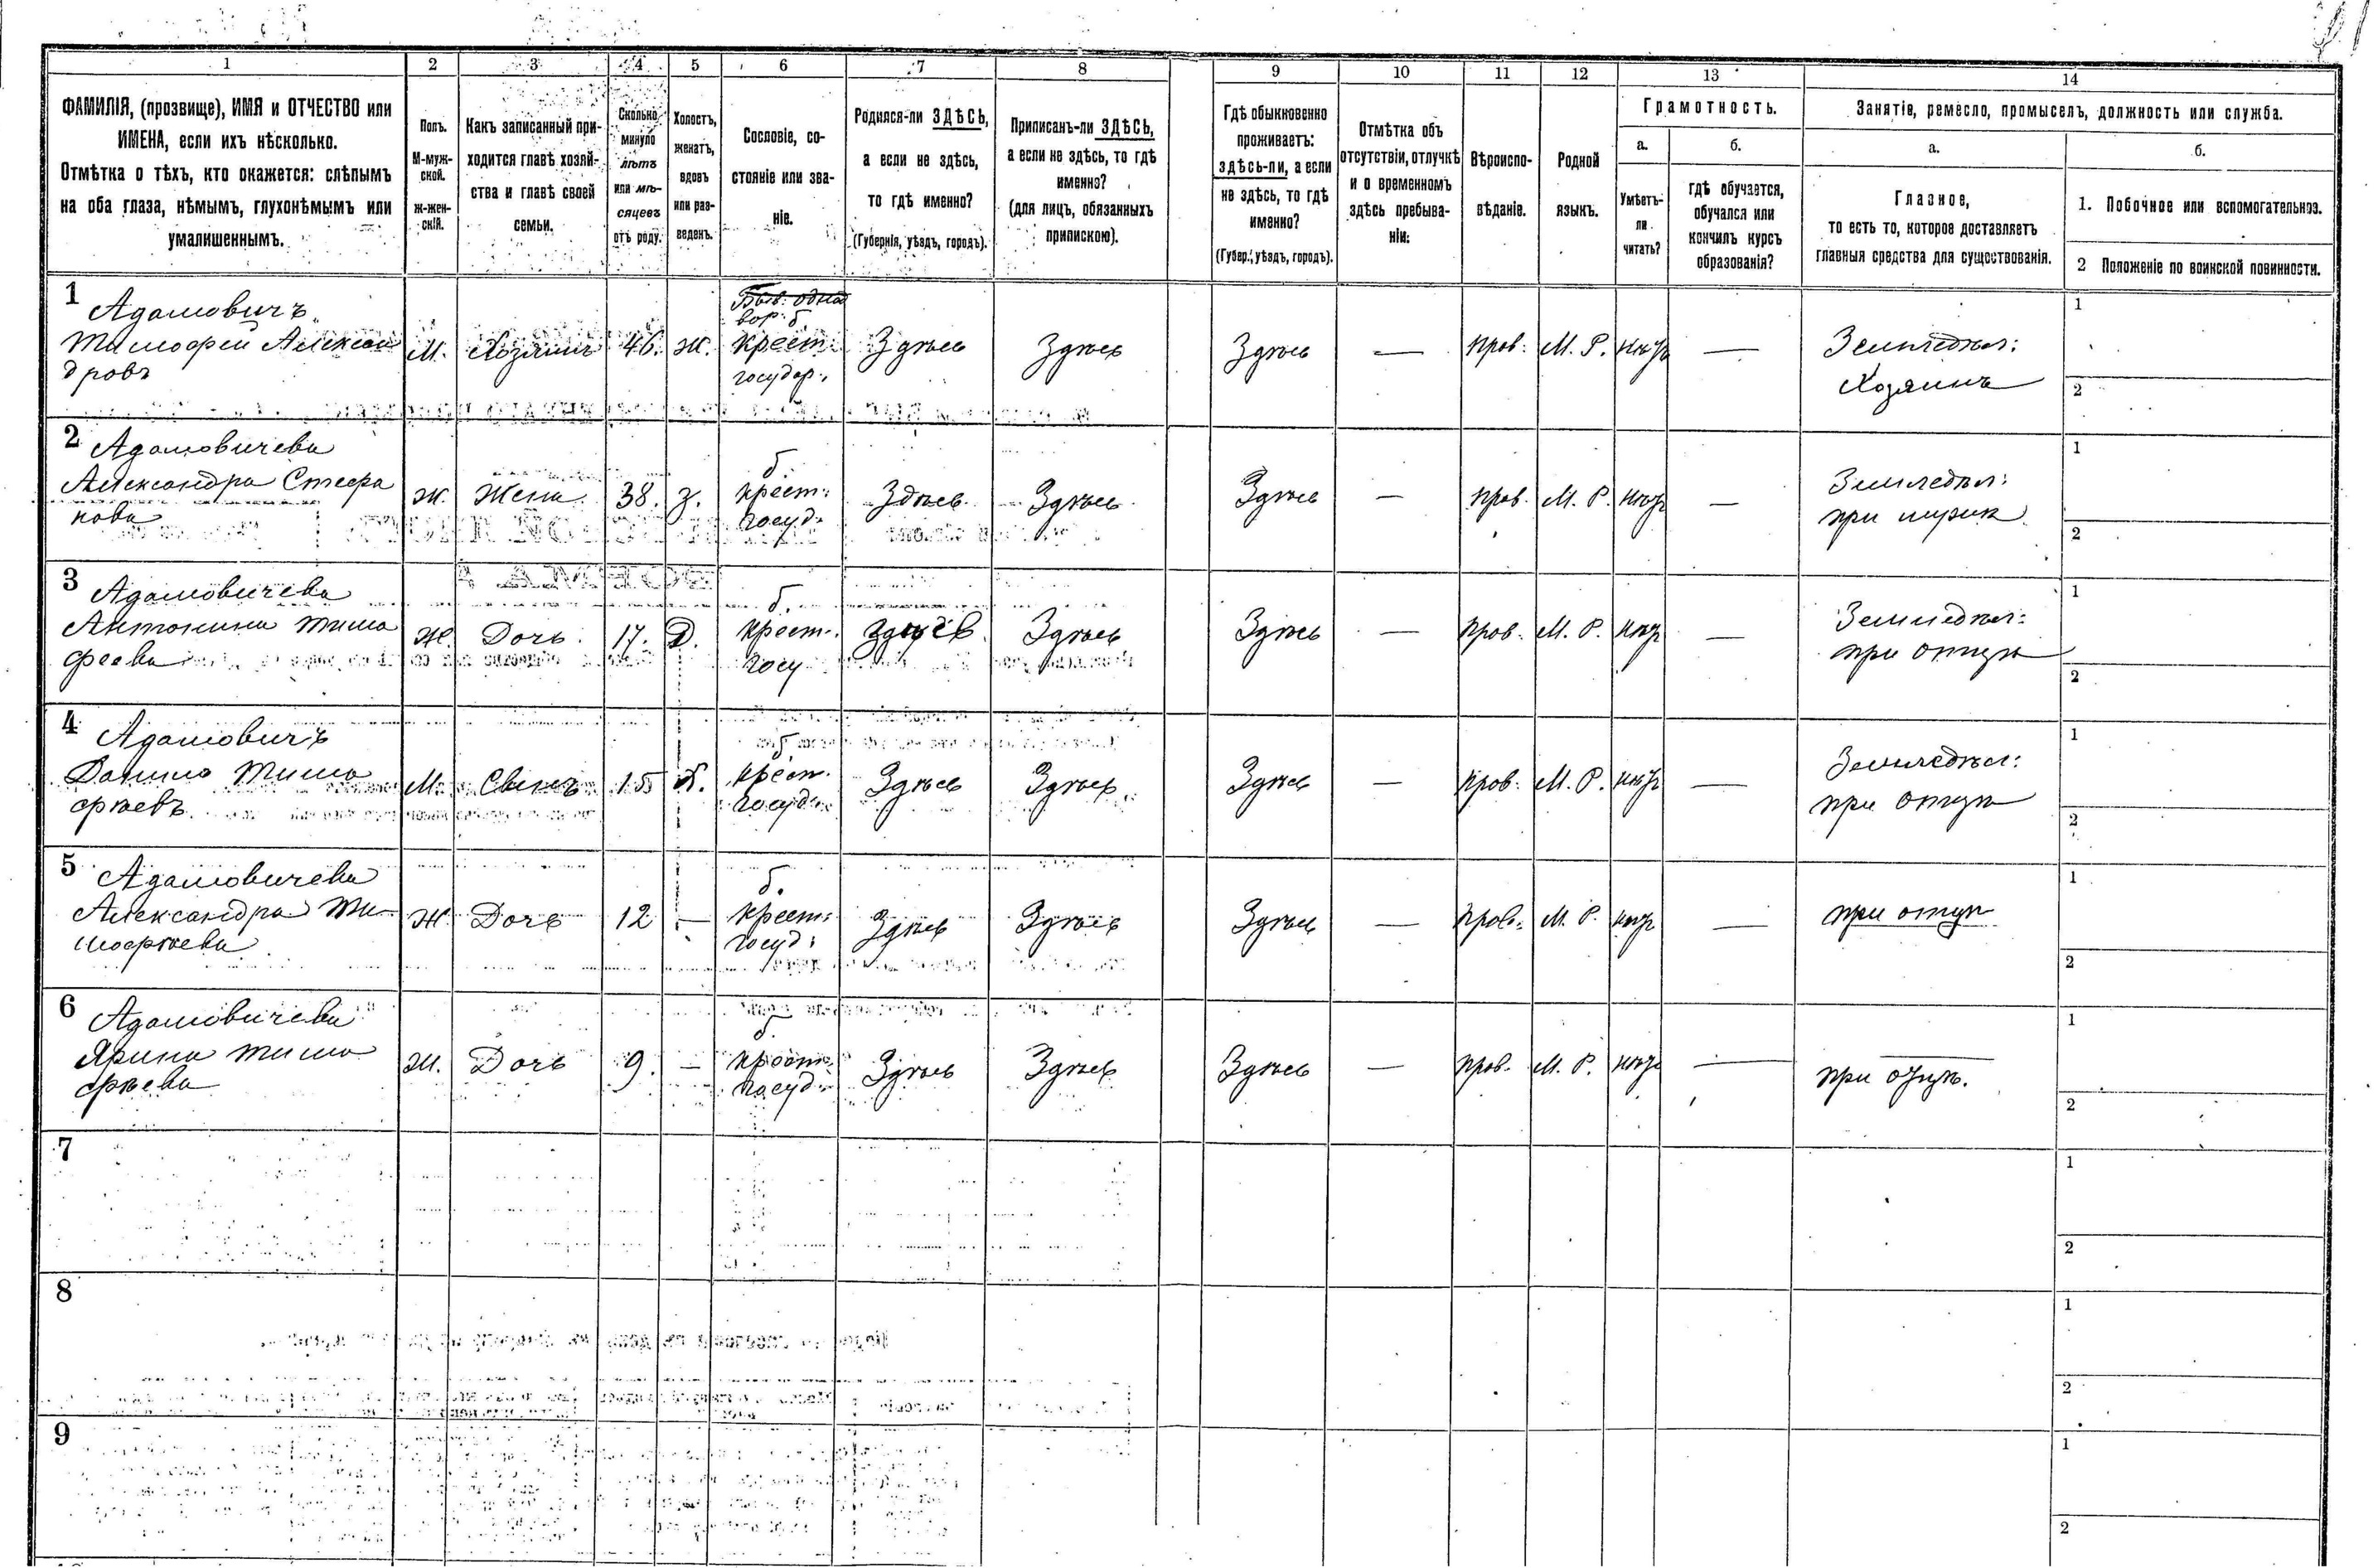 1 2 3 4 5 6 7 8 9 10 11 12 13 14
ФАМИЛІЯ, (прозвище), ИМЯ и ОТЧЕСТВО или
ИМЕНА, если ихъ нѣсколько.
Отмѣтка о тѣхъ, кто окажется: слѣпымъ
на оба глаза, нѣмымъ, глухонѣмымъ или
умалишеннымъ.
Полъ.
М-муж-
ской.
Ж-жен-
скій.
Какъ записанный при-
ходится главѣ хозяй-
ства и главѣ своей
семьи.
Сколько
минуло
лѣтъ
или мѣ-
сяцевъ
отъ роду.
Холостъ,
женатъ,
вдовъ
или раз-
веденъ.
Сословіе, со-
стояніе или зва-
ніе.
Родился-ли ЗДѢСЬ,
а если не здѣсь,
то гдѣ именно?
(Губернія, уѣздъ, городъ).
Приписанъ-ли ЗДѢСЬ,
а если не здѣсь, то гдѣ
именно?
(для лицъ, обязанныхъ
припискою).
Гдѣ обыкновенно
проживаетъ:
здѣсь-ли, а если
не здѣсь, то гдѣ
именно?
(Губер., уѣздъ, городъ).
Отмѣтка объ
отсутствіи, отлучкѣ
и о временномъ
здѣсь пребыва-
ніи:
Вѣроиспо-
вѣданіе.
Родной
языкъ.
Грамотность.
а.
Умѣетъ-
ли
читать?
б.
гдѣ обучается,
обучался или
кончилъ курсъ
образованія?
Занятія, ремесло, промыселъ, должность или служба.
а.
Главное,
то есть то, которое доставляетъ
главныя средства для существованія.
б.
1. Побочное или вспомогательное.
2 Положеніе по воинской повинности.
1 Адамовичъ
Тимофей Алексан
дровъ
М. Хозяинъ 46. ж.
Быв. одно
вор. б
крест.
государ.
Здѣсь Здѣсь Здѣсь — прав. М. Р. нѣтъ —
Земледѣл:
Хозяинъ
1
2
2 Адамовичева
Александра Стефа
нова
ж. Жена 38. з.
б
крест.
госуд.
Здѣсь Здѣсь Здѣсь — прав. М. Р. нѣтъ —
Земледѣл:
при мужѣ
1
2
3 Адамовичева
Антонина Тимо
феева
ж. Дочь 17. Д.
б.
крест.
госу
Здѣсь Здѣсь Здѣсь — прав. М. Р. нѣтъ —
Земледѣл:
при отцѣ
1
2
4 Адамовичъ
Данило Тимо
фѣевъ
М. Сынъ 15
б
крест.
госуд.
Здѣсь Здѣсь Здѣсь — прав. М. Р. нѣтъ —
Земледѣл:
при отцѣ
1
2
5 Адамовичева
Александра Ти-
мофѣева
ж. Дочь 12 —
б.
крест:
госуд:
Здѣсь Здѣсь Здѣсь — прав. М. Р. нѣтъ —
при отцѣ
1
2
6 Адамовичева
Ярина Тимо
фѣева
ж. Дочь 9. —
б
крест.
госуд.
Здѣсь Здѣсь Здѣсь — прав. М. Р. нѣтъ —
при отцѣ.
1
2
7
1
2
8
1
2
9
1
2